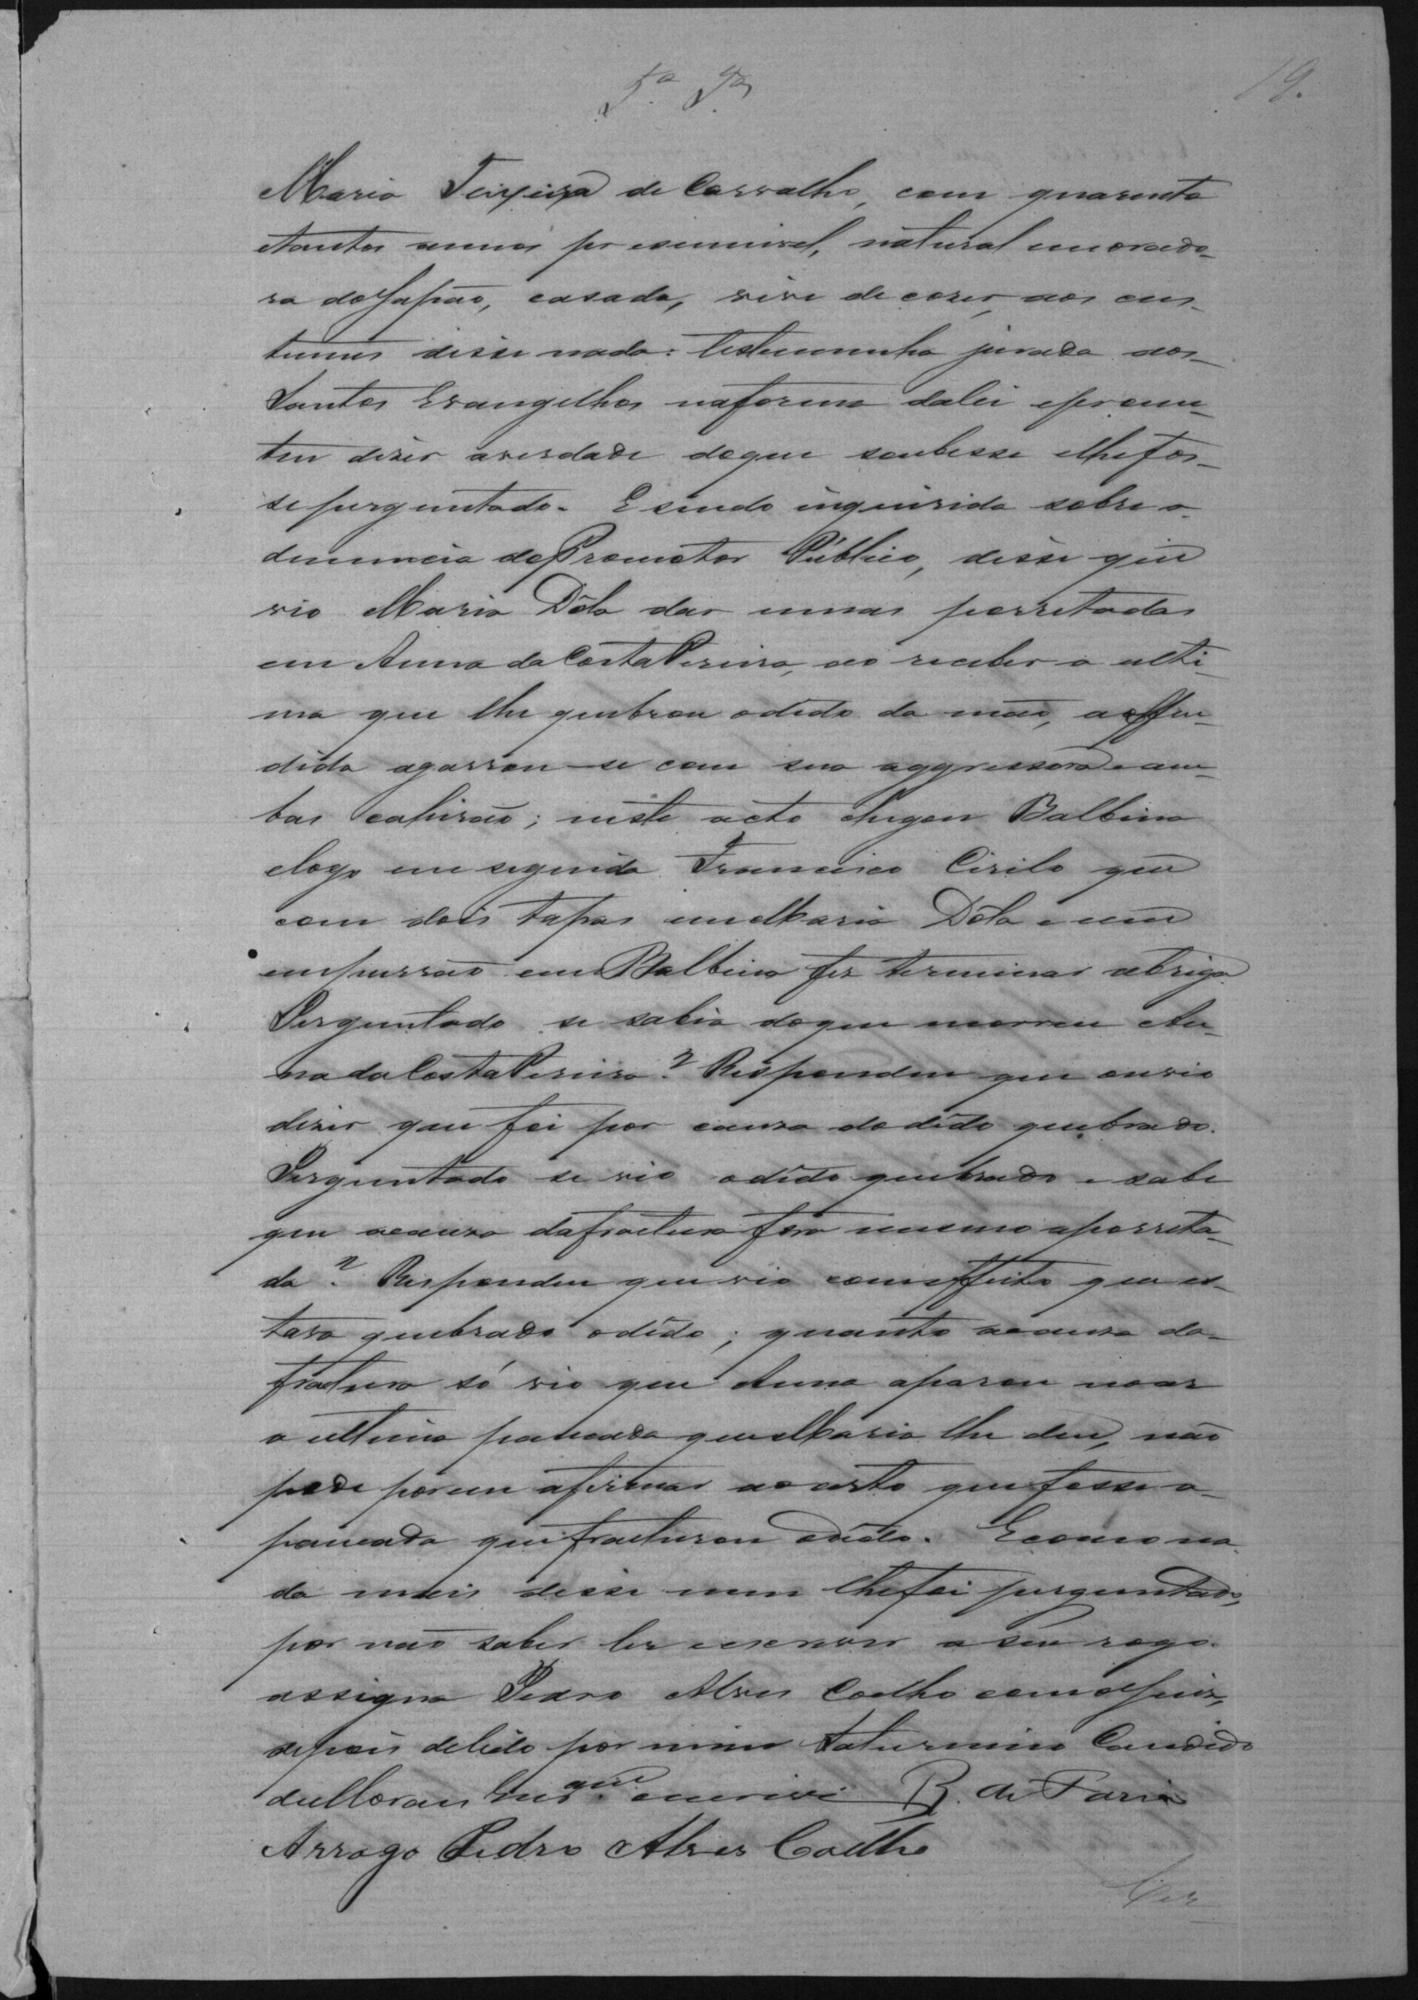 5.ª T.ª
19.
Maria Teixeira de Carvalho, com quarenta
etantos annos presumivel, natural emorado-
ra do Japão, casada, vive de cozer, aos cos-
tumes disse nada: testemunha jurada aos
Santos Evangelhos naforma dalei eprome-
teu dizer averdade doque soubesse elhefos-
seperguntado. E sendo inquirida sobre a
denuncia doPromotor Público, disse que
vio Maria Dóla dar umas porretadas
em Anna daCostaPereira, ao receber a ulti-
ma que lhe quebrou odêdo da mão, aoffen-
dida agarrou-se com sua aggressora e am-
bas cahirão; néste acto chegou Balbina
elogo em seguida Francisco Cirilo que
com dois tapas emMaria Dóla e um
empurrão em Balbina fez terminar abriga.
Perguntado se sabia doque morreu An-
na daCostaPereira? Respondeu que ouvio
dizer que foi por causa do dêdo quebrado.
Perguntado se vio odêdo quebrado e sabe
que acausa dafractura fôra mesmo aporreta-
da? Respondeu que vio comeffeito que es-
tava quebrado odêdo; quanto acausa da-
fractura só vio que Anna aparou noar
a ultima pancada queMaria lhe deu, não
pode porem afirmar aocerto que fosse a-
pancada que fracturou odêdo. Ecomo na-
da mais disse nem lhefoi perguntado,
por não saber ler eescrever a seu rogo
assigna Pedro Alves Coelho com oJuiz,
depois delido por mim Saturnino Candido
deMoraes que escrivi R. de Faria
Arrogo Pedro Alves Coelho